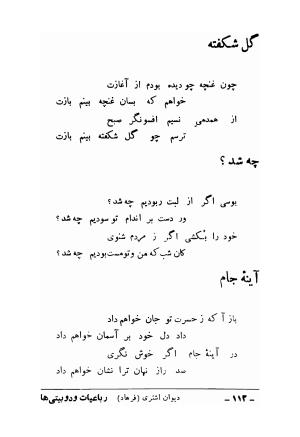 گل شکفته
چون غنچه چو دیده بودم از آغازت
خواهم که بسان غنچه بینم بازت
از همدمی نسیم افسونگر صبح
ترسم چو گل شکفته بینم بازت
چه شد؟
بوسی اگر از لبت ربودیم چه شد؟
ور دست بر اندام تو سودیم چه شد؟
خود را بکشی اگر ز مردم شنوی
کان شب که من و تومست بودیم چه شد؟
آینهٔ جام
باز آ که ز حسرت تو جان خواهم داد
داد دل خود بر آسمان خواهم داد
در آینهٔ جام اگر خوش نگری
صد راز نهان ترا نشان خواهم داد
ـ ۱۱۳ ـ دیوان اشتری (فرهاد) رباعیات ودوبیتی‌ها